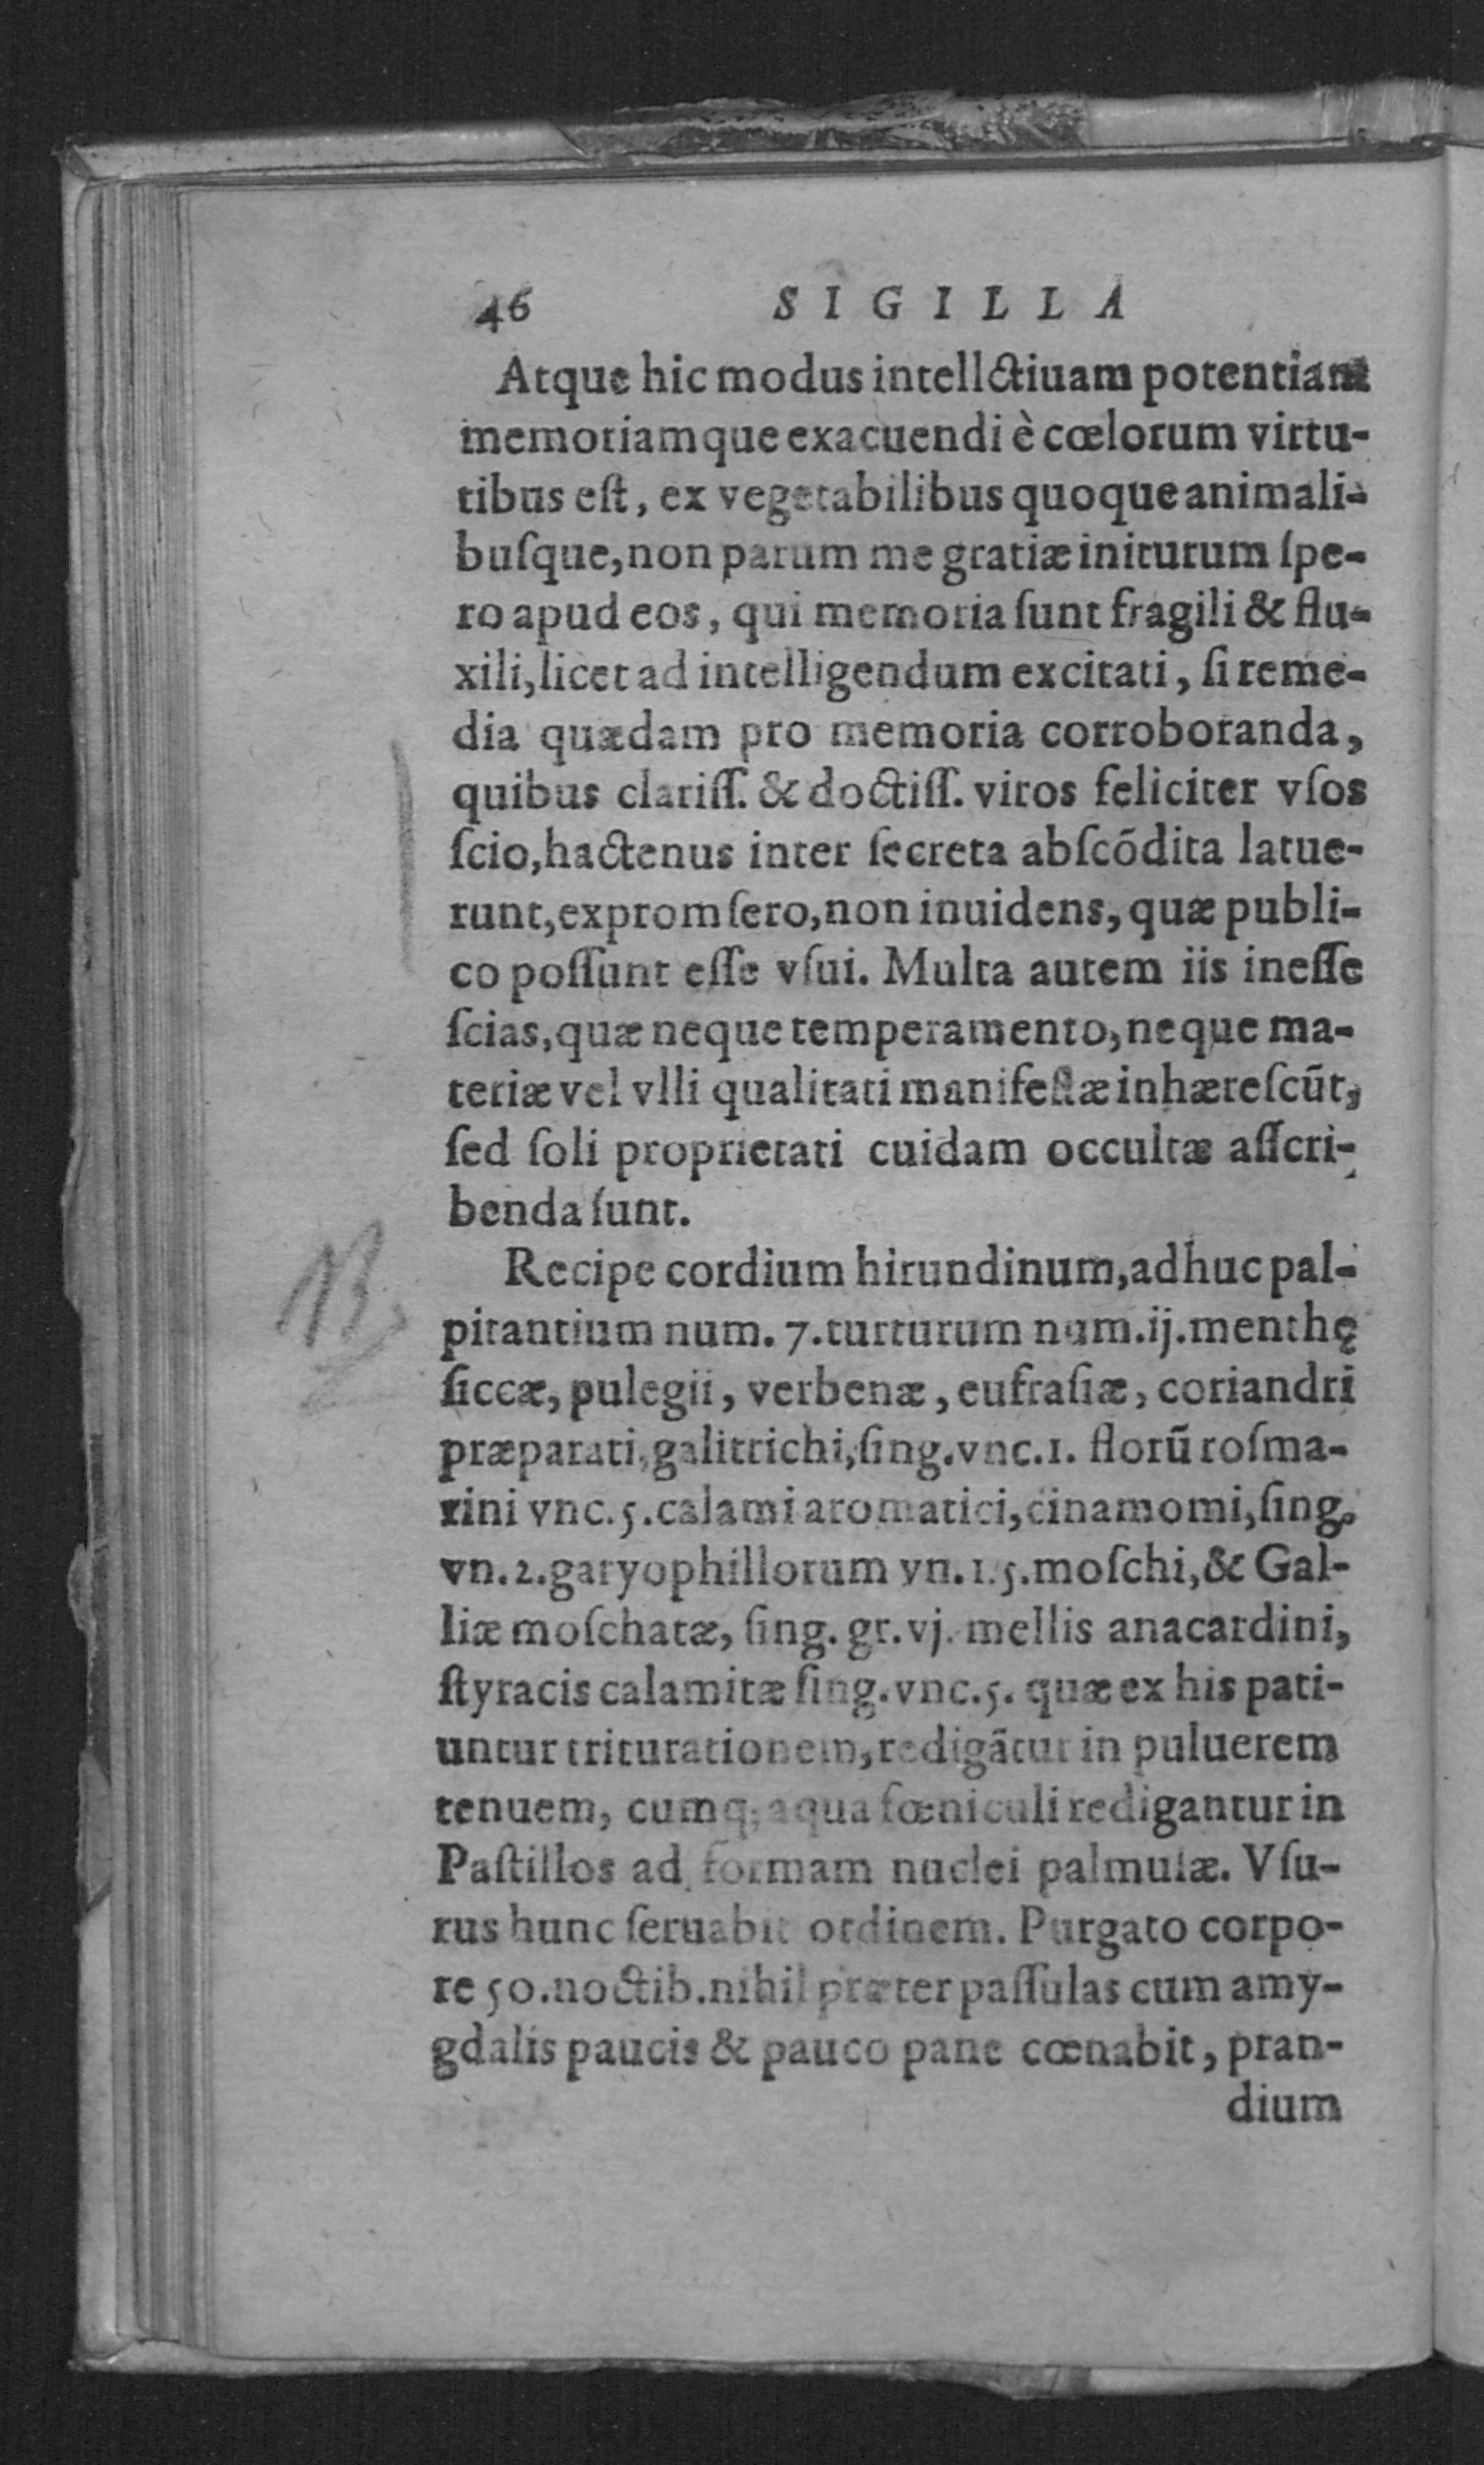 46 SIGILLA
Atque hic modus intellctiuam potentiam
memoriamque exacuendi è cœlorum virtu-
tibus eſt, ex vegetabilibus quoque animali-
buſque, non parum me gratiæ initurum ſpe-
ro apud eos, qui memoria ſunt fragili & flu-
xili, licet ad intelligendum excitati, ſi reme-
dia quædam pro memoria corroboranda,
quibus clariſſ. & doctiſſ. viros feliciter vſos
ſcio, hactenus inter ſecreta abſcõdita latue-
runt, expromſero, non inuidens, quæ publi-
co poſſunt eſſe vſui. Multa autem iis ineſſe
ſcias, quæ neque temperamento, neque ma-
teriæ vel vlli qualitati manifeſtæ inhæreſcũt,
ſed ſoli proprietati cuidam occultæ aſſcri-
benda ſunt.
Recipe cordium hirundinum, adhuc pal-
pitantium num. 7. turturum num. ij. menthę
ſiccæ, pulegii, verbenæ, eufraſiæ, coriandri
præparati, galitrichi, ſing. vnc. 1. florũ roſma-
rini vnc. 5. calami aromatici, cinamomi, ſing.
vn. 2. garyophillorum vn. 1. 5. moſchi, & Gal-
liæ moſchatæ, ſing. gr. vj. mellis anacardini,
ſtyracis calamitæ ſing. vnc. 5. quæ ex his pati-
untur triturationem, redigãtur in puluerem
tenuem, cumq; aqua fœniculi redigantur in
Paſtillos ad formam nuclei palmulæ. Vſu-
rus hunc ſeruabit ordinem. Purgato corpo-
re 50. noctib. nihil præter paſſulas cum amy-
gdalis paucis & pauco pane cœnabit, pran-
dium